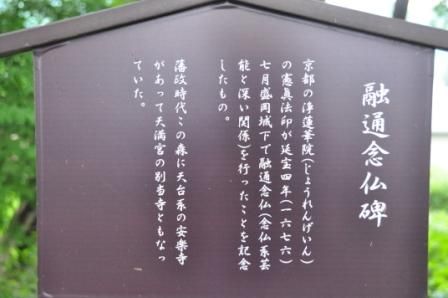 融通念仏碑
京都の浄蓮華院(じょうれんげいん)
の憲真法印が延宝四年(一六七六)
七月盛岡城下で融通念仏(念仏系芸
能と深い関係)を行ったことを記念
したもの。
藩政時代この森に天台系の安楽寺
があって天満宮の別当寺ともなっ
ていた。